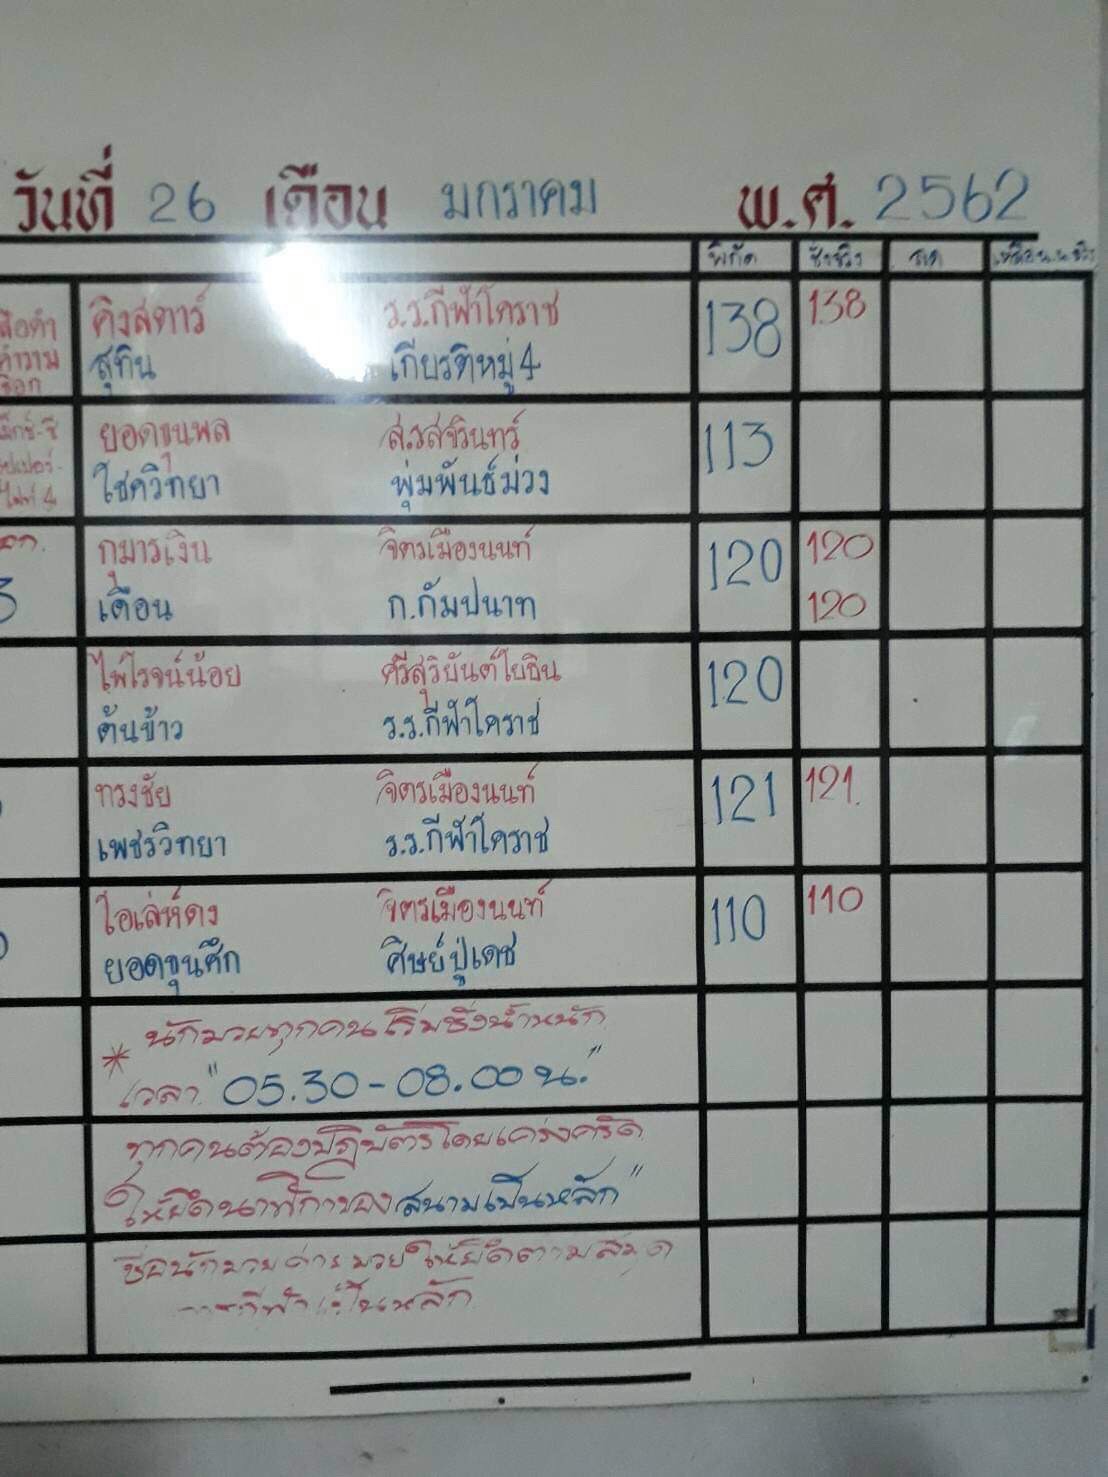 วันที่ 26 เดือน มกราคม พ.ศ. 2562
พิกัด ชั่งจริง
คิงสตาร์ ร.ร.กีฬาโคราช 138 138
สุทิน เกียรติหมู่4
ยอดขุนพล ส.รสจรินทร์ 113
โชควิทยา พุ่มพันธ์ม่วง
กุมารเงิน จิตรเมืองนนท์ 120 120
เดือน ก.กัมปนาท 120
ไพโรจน์น้อย ศรีสุริยันต์โยธิน 120
ต้นข้าว ร.ร.กีฬาโคราช
ทรงชัย จิตรเมืองนนท์ 121 121.
เพชรวิทยา ร.ร.กีฬาโคราช
ไอเล่ห์ดง จิตรเมืองนนท์ 110 110
ยอดขุนศึก ศิษย์ปู่เดช
* นักมวยทุกคนเริ่มชั่งน้ำหนัก
เวลา "05.30-08.00 น."
ทุกคนต้องปฏิบัติโดยเคร่งครัด
ให้ยึดนาฬิกาของสนามเป็นหลัก"
ชื่อนักมวย ค่ายมวย ให้ยึดตามสมุด
กีฬา เป็นหลัก